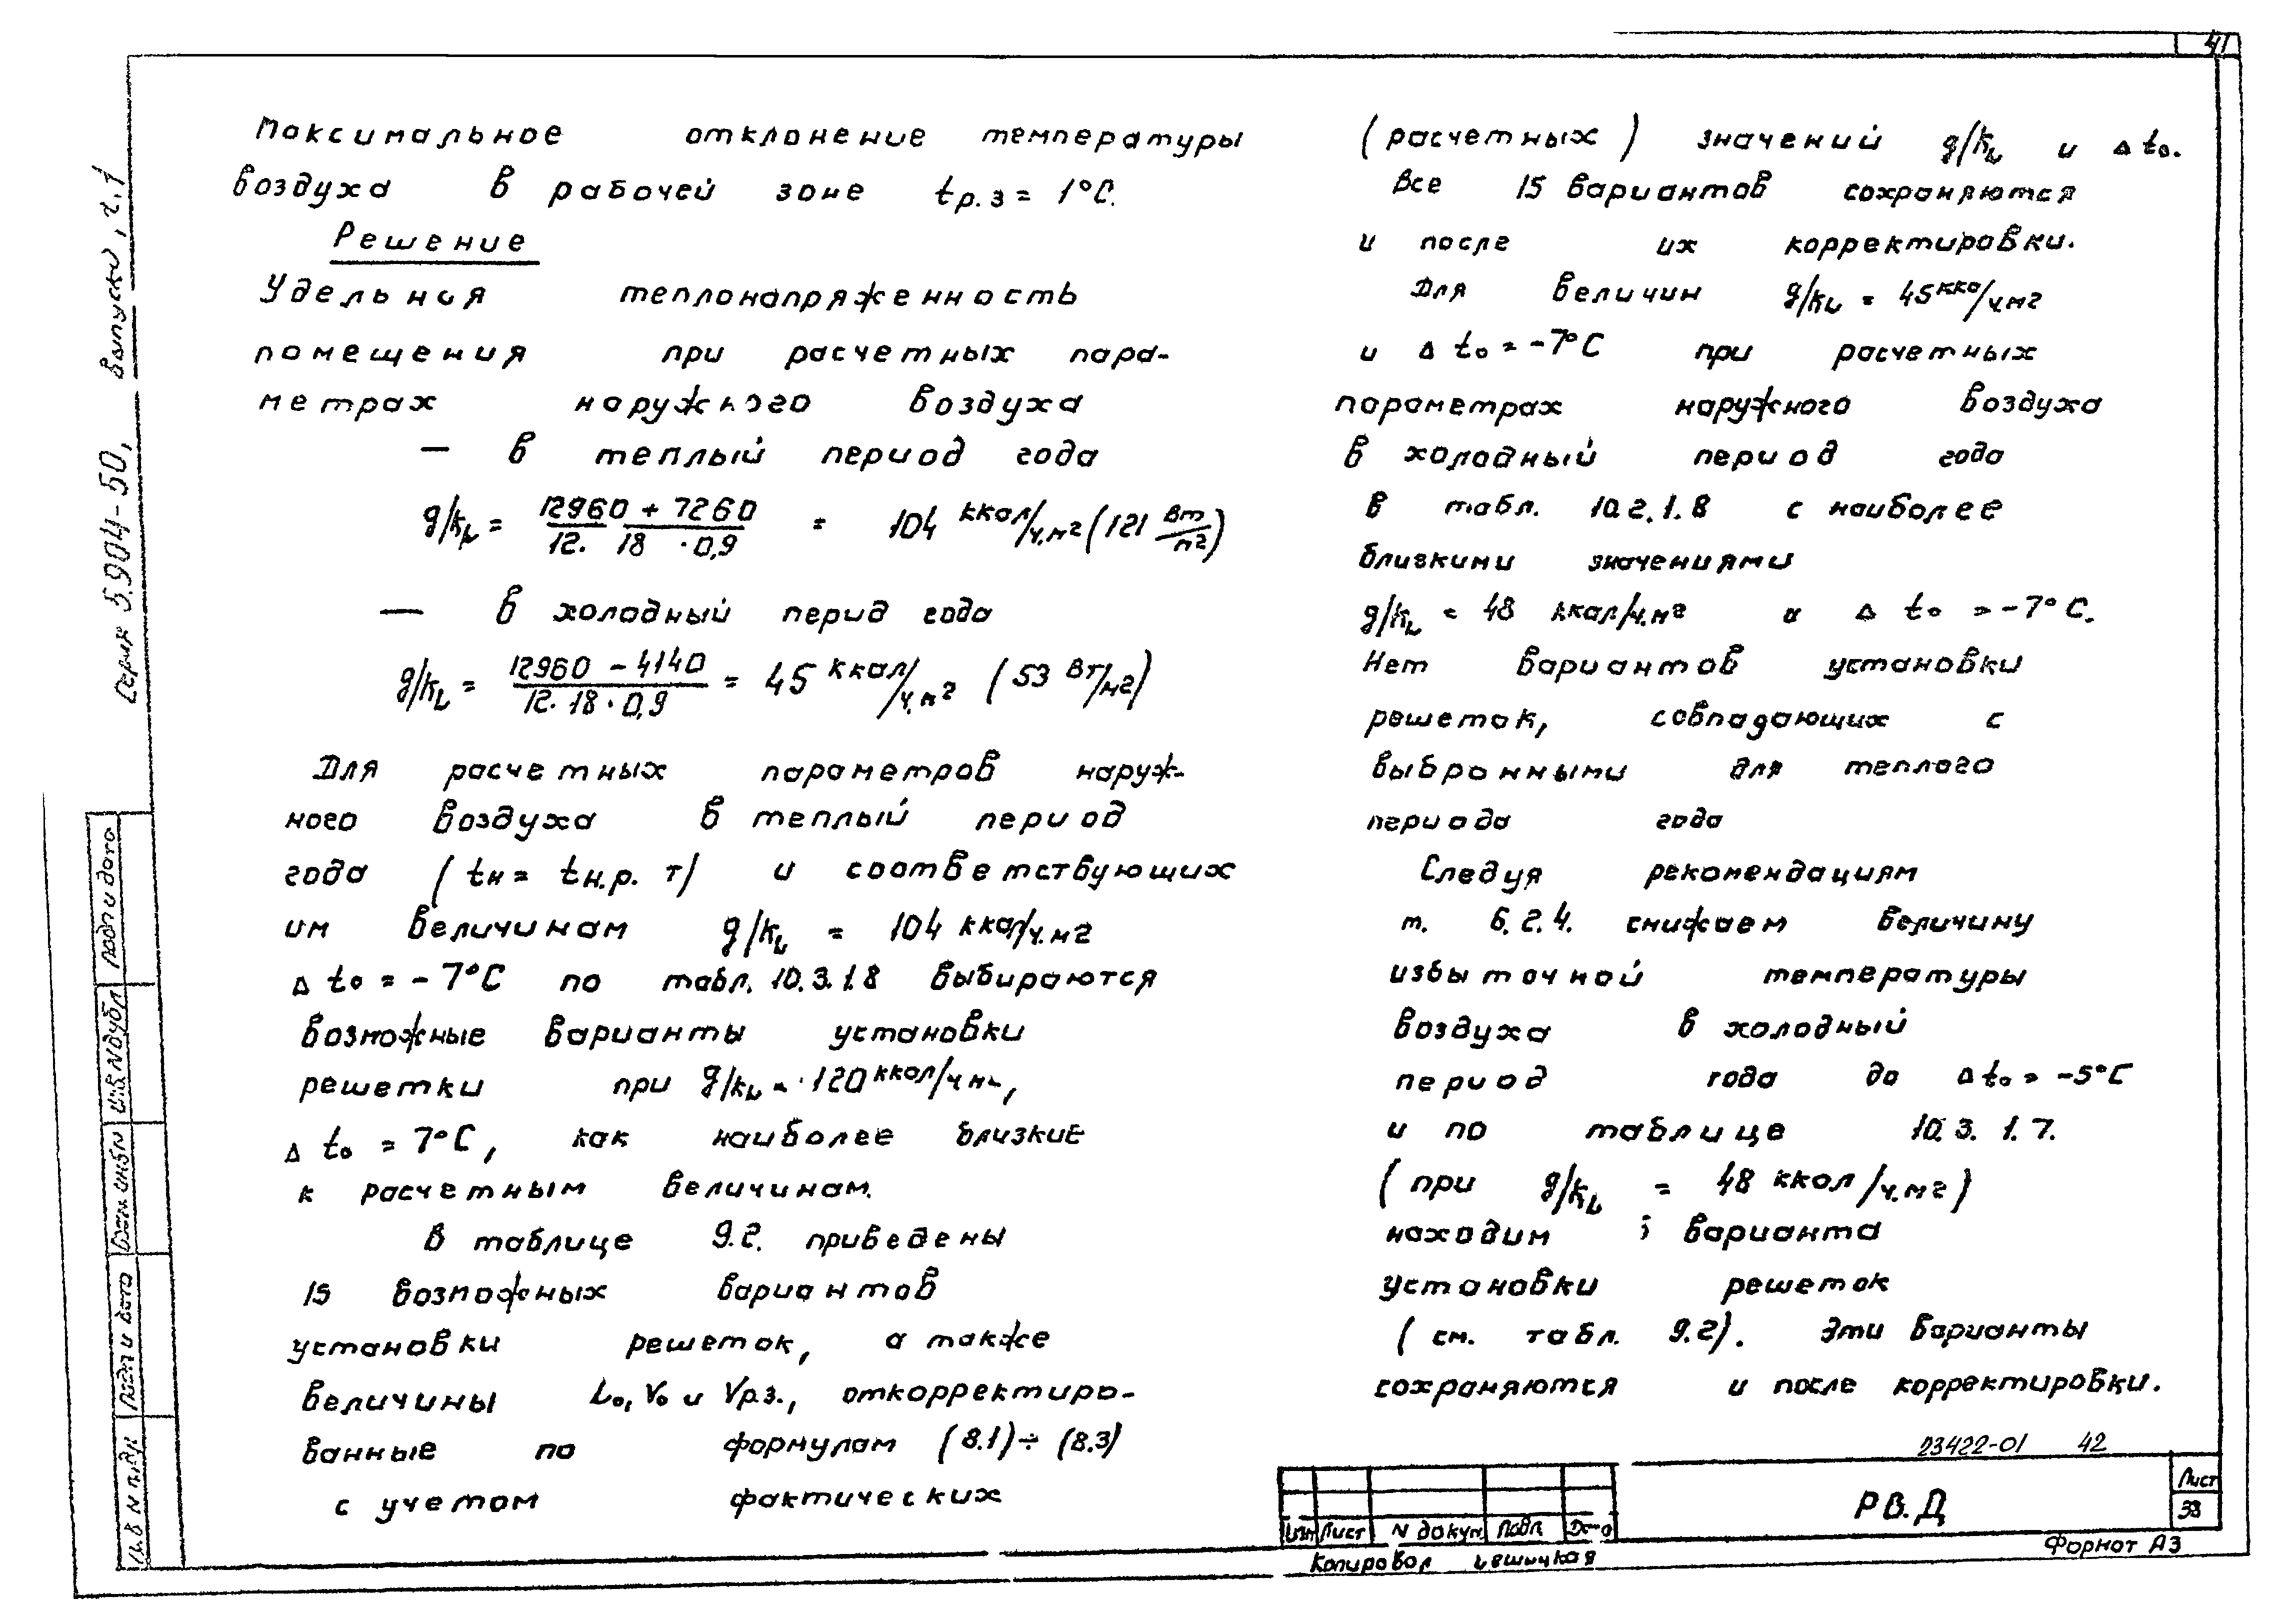 41
Максимальное отклонение температуры
воздуха в рабочей зоне tр.з = 1°С.
Решение
Удельная теплонапряженность
помещения при расчетных пара-
метрах наружного воздуха
— в теплый период года
g/kL = 12960 + 7260 / 12. 18 · 0,9 = 104 ккал/ч.м2 (121 Вт/м2)
— в холодный перид года
g/kL = 12960 - 4140 / 12. 18 · 0,9 = 45 ккал/ч.м2 (53 Вт/м2)
Для расчетных параметров наруж-
ного воздуха в теплый период
года (tн = tн.р. т) и соответствующих
им величинам g/kL = 104 ккал/ч.м2
Δ t0 = - 7°С по табл. 10.3.1.8 выбираются
возможные варианты установки
решетки при g/kL = 120 ккал/ч.м2,
Δ t0 = 7°С, как наиболее близкие
к расчетным величинам.
В таблице 9.2. приведены
15 возможных вариантов
установки решеток, а также
величины L0, V0 и Vр.з., откорректиро-
ванные по формулам (8.1) ÷ (8.3)
с учетом фактических
(расчетных) значений g/kL и Δ t0.
Все 15 вариантов сохраняются
и после их корректировки.
Для величин g/kL = 45 ккал/ч.м2
и Δ t0 = -7°С при расчетных
параметрах наружного воздуха
в холодный период года
в табл. 10.2.1.8 с наиболее
близкими значениями
g/kL = 48 ккал/ч.м2 и Δ t0 = -7°С.
Нет вариантов установки
решеток, совпадающих с
выбранными для теплого
периода года
Следуя рекомендациям
т. 6.2.4. снижаем величину
избыточной температуры
воздуха в холодный
период года до Δ t0 = -5°С
и по таблице 10.3.1.7.
(при g/kL = 48 ккал/ч.м2)
находим варианта
установки решеток
(см. табл. 9.2). Эти варианты
сохраняются и после корректировки.
23422-01 42
Изм Лист N докум Подп Дата
РВ.Д
Лист
38
Копировал
Формат А3
Серия 5.904-50, Выпуск 0, ч.1
Подп и дата
Инв N дубл
Взам инв N
Подп и дата
Инв N подл